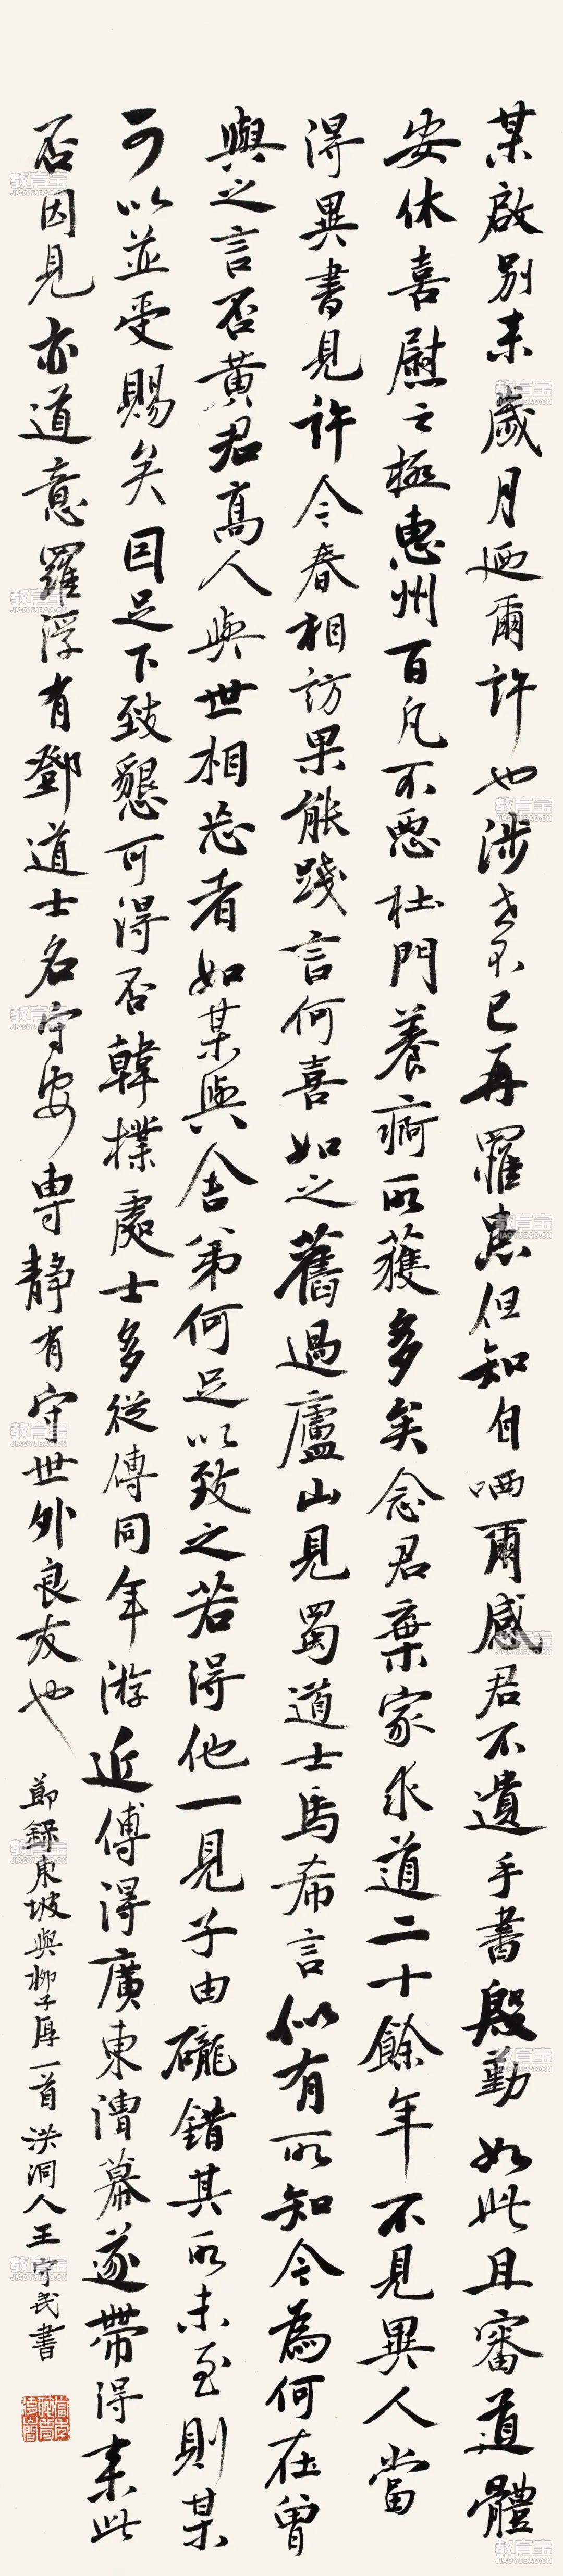 某啟別来歲月迺爾許也涉世不已再罹患但知自哂爾感君不遺手書殷勤如此且審道體
安休喜慰之極惠州百凡不惡杜門養痾所獲多矣念君棄家求道二十餘年不見異人當
得異書見許今春相訪果能踐言何喜如之舊過廬山見蜀道士馬希言似有所知今為何在曾
與之言否黄君高人與世相忘者如某與舍弟何足以致之若得他一見子由礲錯其所未至則某
可以並受賜矣因足下致懇可得否韓樸處士多從傅同年游近傅得廣東漕幕遂帶得来此
否因見亦道意羅浮有鄧道士名守安專静有守世外良友也
節錄東坡與柳子厚一首洪洞人王守民書
教育宝
JIAOYUBAO.CN